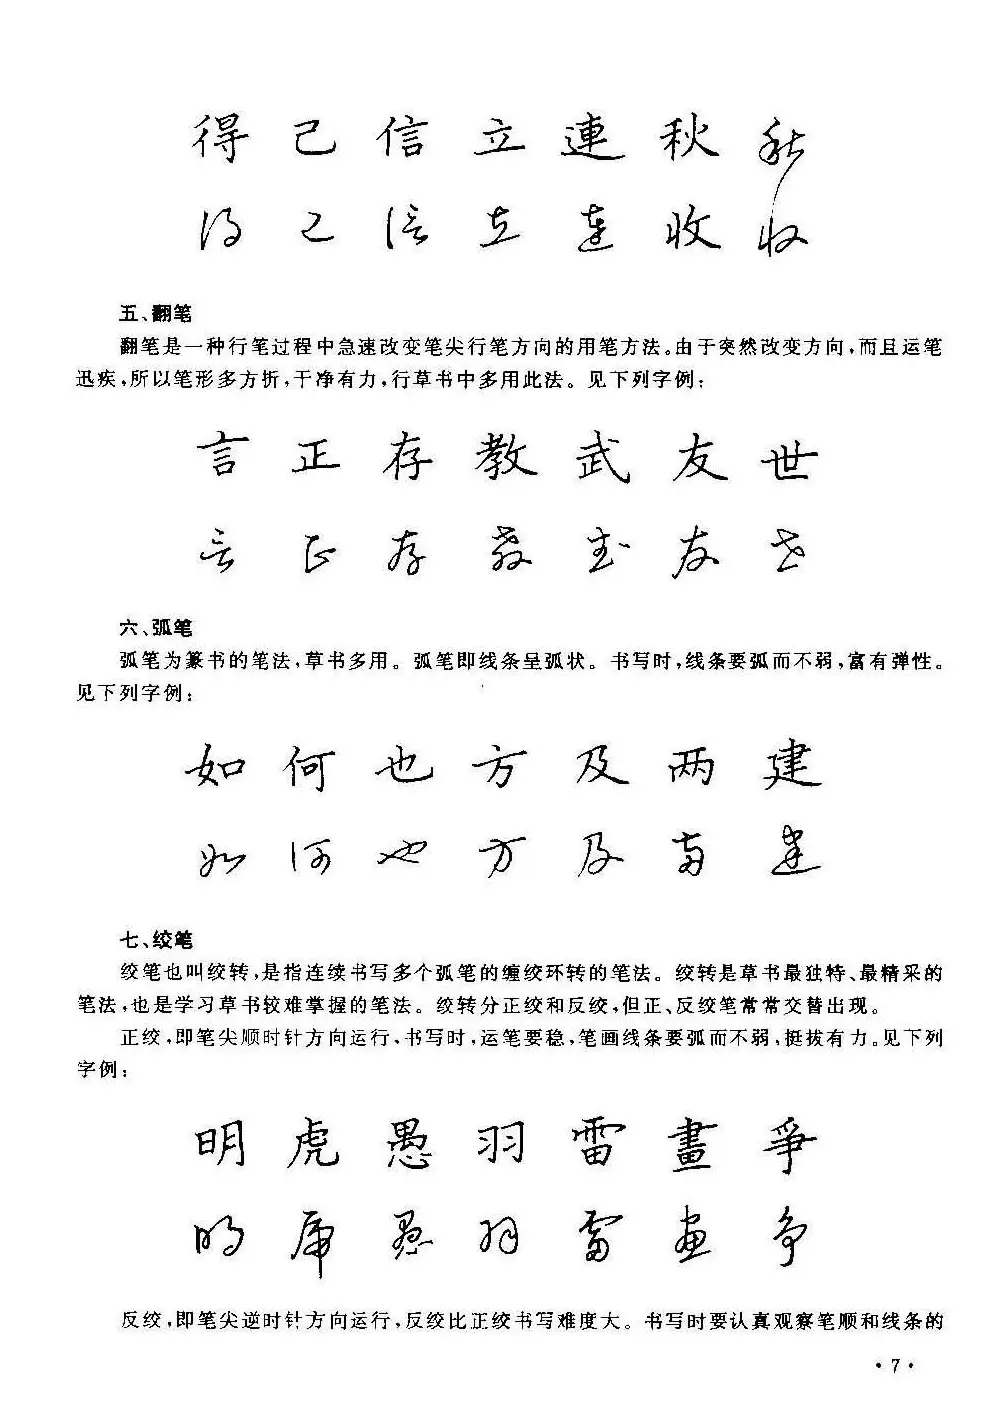 得 己 信 立 連 秋 秋
得 己 信 立 連 收 收
五、翻笔
翻笔是一种行笔过程中急速改变笔尖行笔方向的用笔方法。由于突然改变方向,而且运笔
迅疾,所以笔形多方折,干净有力,行草书中多用此法。见下列字例:
言 正 存 教 武 友 世
言 正 存 教 武 友 世
六、弧笔
弧笔为篆书的笔法,草书多用。弧笔即线条呈弧状。书写时,线条要弧而不弱,富有弹性。
见下列字例:
如 何 也 方 及 两 建
如 何 也 方 及 两 建
七、绞笔
绞笔也叫绞转,是指连续书写多个弧笔的缠绞环转的笔法。绞转是草书最独特、最精采的
笔法,也是学习草书较难掌握的笔法。绞转分正绞和反绞,但正、反绞笔常常交替出现。
正绞,即笔尖顺时针方向运行,书写时,运笔要稳,笔画线条要弧而不弱,挺拔有力。见下列
字例:
明 虎 愚 羽 雷 畫 爭
明 虎 愚 羽 雷 畫 爭
反绞,即笔尖逆时针方向运行,反绞比正绞书写难度大。书写时要认真观察笔顺和线条的
·7·